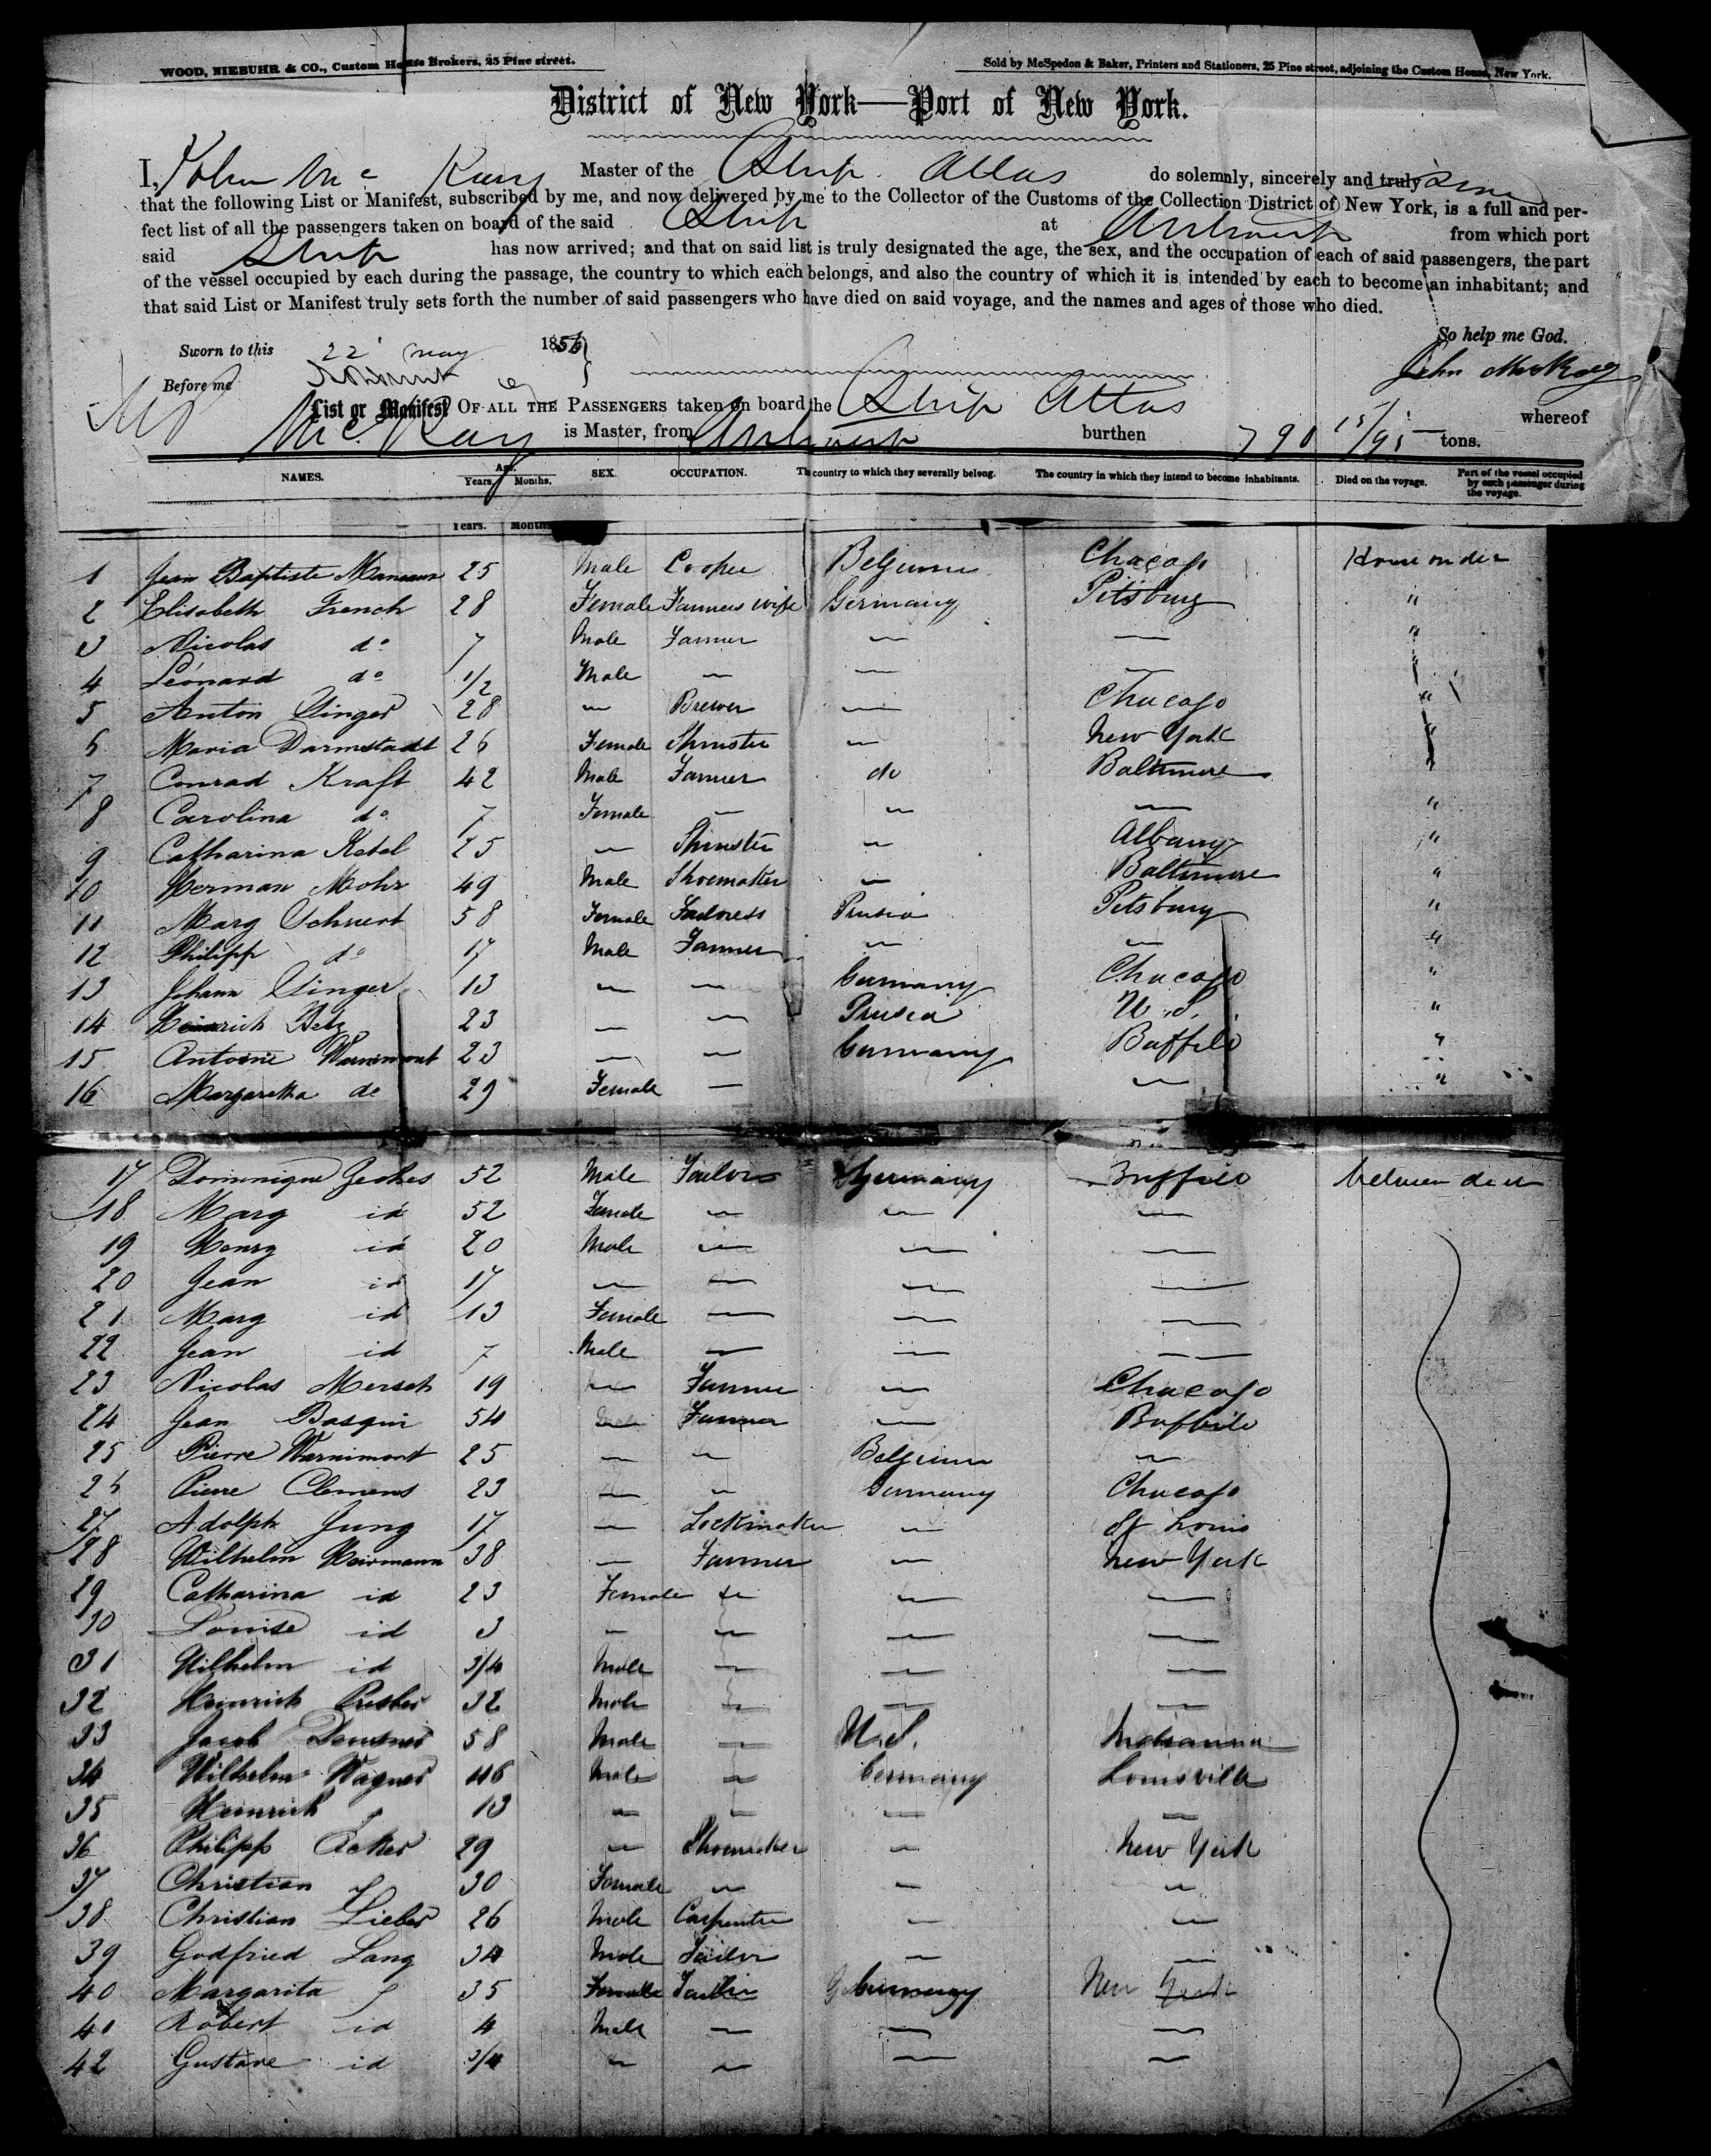 WOOD, NIEBUHR & CO., Custom House Brokers, 25 Pine street.
Sold by McSpedon & Baker, Printers and Stationers, 25 Pine street, adjoining the Custom House, New York.
District of New York—Port of New York.
I, John Mc Kay Master of the Ship Atlas do solemnly, sincerely and truly
that the following List or Manifest, subscribed by me, and now delivered by me to the Collector of the Customs of the Collection District of New York, is a full and per-
fect list of all the passengers taken on board of the said Ship at Antwerp from which port
said Ship has now arrived; and that on said list is truly designated the age, the sex, and the occupation of each of said passengers, the part
of the vessel occupied by each during the passage, the country to which each belongs, and also the country of which it is intended by each to become an inhabitant; and
that said List or Manifest truly sets forth the number of said passengers who have died on said voyage, and the names and ages of those who died.
So help me God.
Sworn to this 22 May 1856
John McKay
Before me
List or Manifest OF ALL THE PASSENGERS taken on board the Ship Atlas whereof
McKay is Master, from Antwerp burthen 790 15/95 tons.
NAMES. Age. Years. Months. SEX. OCCUPATION. The country to which they severally belong. The country in which they intend to become inhabitants. Died on the voyage. Part of the vessel occupied by each passenger during the voyage.
Years. Months
1 Jean Baptiste 25 Male Cooper Belgium Chacago
2 Elisabeth French 28 Female Farmers wife Germany Pitsburg "
3 Nicolas do 7 Male Farmer — — "
4 Léonard do 1/2 Male — — — "
5 Anton 28 — Brewer — Chacago "
6 Maria Darmstadt 26 Female — New York "
7 Conrad Kraft 42 Male Farmer do Baltimore "
8 Carolina do 7 Female — — — "
9 Catharina Ketel 25 — — Albany "
10 Herman Mohr 49 Male Shoemaker — Baltimore "
11 Marg 58 Female Tailoress Prusia Pitsburg "
12 Philipp do 17 Male Farmer — — "
13 Johann 13 — — Germany Chacago "
14 Heinrich Betz 23 — — Prusia U.S. "
15 Antoine Warnimont 23 — — Germany Buffelo "
16 Margaretha do 29 Female — — "
17 Dominique 52 Male Tailor Germany Buffelo between deck
18 Marg id 52 Female — — —
19 Henry id 20 Male — — —
20 Jean id 17 — — — —
21 Marg id 13 Female — — —
22 Jean id 7 Male — — —
23 Nicolas Mersch 19 — Farmer — Chacago
24 Jean Basquin 54 — Farmer — Buffelo
25 Pierre Warnimont 25 — — Belgium —
26 Pierre Clemens 23 — — Germany Chacago
27 Adolph Jung 17 — Lockmaker — St Louis
28 Wilhelm 38 — Farmer — New York
29 Catharina id 23 Female — — —
30 Louise id 3 — — — —
31 Wilhelm id 3/4 Male — — —
32 Heinrich 32 Male — — —
33 Jacob 58 Male — U.S.
34 Wilhelm Wagner 46 Male — Germany Louisville
35 Heinrich 13 — — — —
36 Philipp Acker 29 — Shoemaker — New York
37 Christian 30 Female — — —
38 Christian Lieber 26 Male Carpenter — —
39 Godfried Lang 34 Male Tailor — —
40 Margarita 35 Female Tailor Germany New York
41 Robert id 4 Male — — —
42 Gustave id 3/4 — — — —